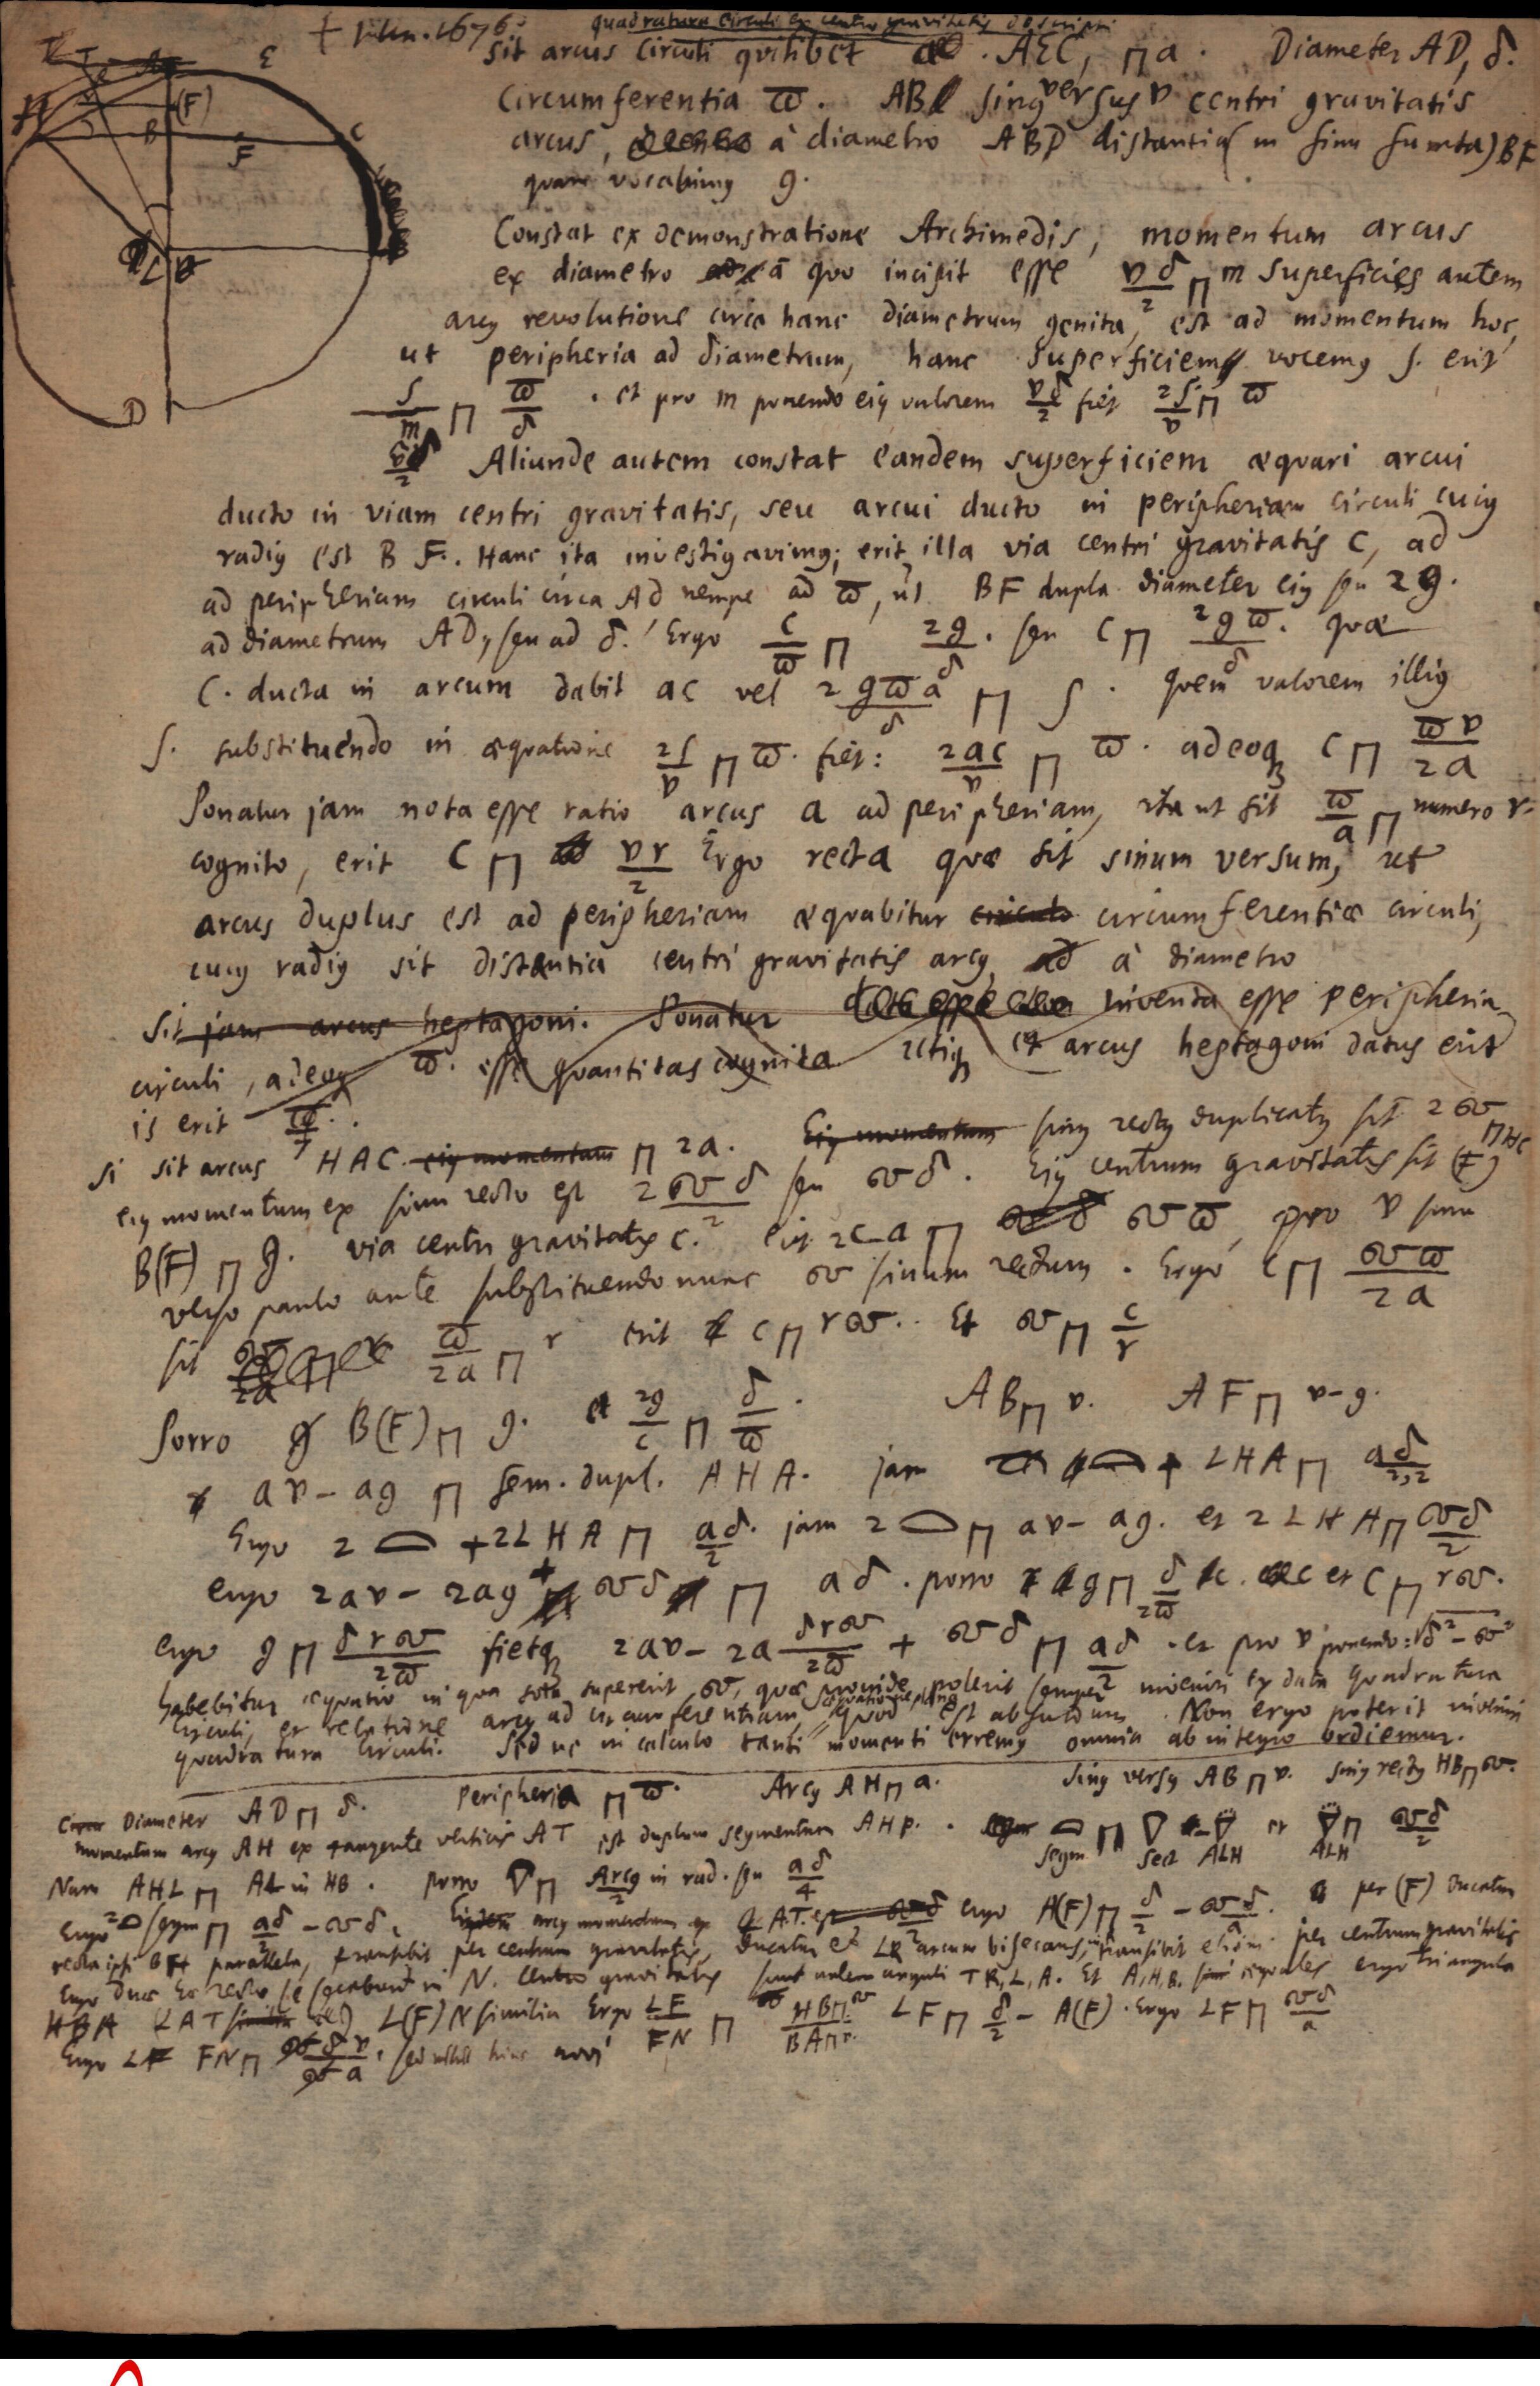 + 1676
quadratura circuli ex centro gravitatis descripti
Sit arcus circuli quilibet AEC, ⊓ a. Diameter AD, δ.
Circumferentia ϖ. AB sinus versus v centri gravitatis
arcus, à diametro ABD distantia (in sinu sumta) BF
quam vocabimus g.
Constat ex demonstratione Archimedis, momentum arcus
ex diametro à quo incipit esse vδ/2 ⊓ m superficies autem
arcus revolutione circa hanc diametrum genita, est ad momentum hoc,
ut peripheria ad diametrum, hanc superficiem vocemus s. erit
s/m ⊓ ϖ/δ. et pro m ponendo eius valorem vδ/2 fiet 2s/v ⊓ ϖ
vδ/2
Aliunde autem constat eandem superficiem æquari arcui
ducto in viam centri gravitatis, seu arcui ducto in peripheriam circuli cuius
radius est BF. Hanc ita investigavimus; erit illa via centri gravitatis C, ad
ad peripheriam circuli circa AD nempe ad ϖ, ut BF dupla diameter eius seu 2g.
ad diametrum AD, seu ad δ. Ergo c/ϖ ⊓ 2g/δ. seu c ⊓ 2gϖ/δ. quæ
C. ducta in arcum dabit ac vel 2gϖa/δ ⊓ s. Quem valorem illius
s. substituendo in æquatione 2s/v ⊓ ϖ. fiet: 2ac/v ⊓ ϖ. adeoque c ⊓ ϖv/2a
Ponatur jam nota esse ratio arcus a ad peripheriam, ita ut sit ϖ/a ⊓ numero r.
cognito, erit c ⊓ vr/2 Ergo recta quæ sit sinum versum, ut
arcus duplus est ad peripheriam æquabitur circumferentiæ circuli,
cuius radius sit distantia centri gravitatis arcus à diametro
Sit jam arcus heptagoni. Ponatur inventa esse peripheria
circuli, adeoque ϖ. esse quantitas cognita utique et arcus heptagoni datus erit
is erit ϖ/7.
Si sit arcus HAC eius momentum ⊓ 2a. Eius momentum sinus rectus duplicatus sit 2σ ⊓ HC
eius momentum ex sinu recto est 2σδ/2 seu σδ. Eius centrum gravitatis sit (F)
B(F) ⊓ g. via centri gravitatis c. erit 2ca ⊓ σϖ, pro v sinu
verso paulo ante substituendo nunc σ sinum rectum. Ergo c ⊓ σϖ/2a
sit ϖ/2a ⊓ r erit c ⊓ rσ. Et σ ⊓ c/r
Porro B(F) ⊓ g. et 2g/c ⊓ δ/ϖ. AB ⊓ v. AF ⊓ v-g.
av-ag ⊓ sem. dupl. AHA. jam + LHA ⊓ aδ/2,2
Ergo 2⌓ + 2LHA ⊓ aδ/2. jam 2⌓ ⊓ av-ag. et 2LHA ⊓ σδ/2
ergo 2av-2ag + σδ ⊓ aδ. porro g ⊓ δ/2ϖ c. et c ⊓ rσ.
ergo g ⊓ δrσ/2ϖ fietque 2av-2a δrσ/2ϖ + σδ ⊓ aδ. et pro v ponendo: √δ²-σ²
habebitur æquatio in qua sola supererit σ, quæ proinde poterit semper inveniri ex data quadratura
circuli, et relatione arcus ad circumferentiam æquatione plana quod est absurdum. Non ergo poterit inveniri
quadratura circuli. Sed ne in calculo tanti momenti erremus omnia ab integro ordiemur.
Diameter AD ⊓ δ. Peripheria ⊓ ϖ. Arcus AH ⊓ a. Sinus versus AB ⊓ v. sinus rectus HB ⊓ σ.
momentum arcus AH ex tangente verticis AT est duplum segmentum AHP. segm ⊓ sect - ALH et ALH ⊓ σδ/2
Nam AHL ⊓ AL in HB. porro ⊓ Arcus/2 in rad. seu aδ/4
Ergo 2 segm ⊓ aδ/2 - σδ. arcus momentum ex AT. est ergo A(F) ⊓ δ/2 - σδ/a. per (F) ducatur
recta ipsi BH parallela, transibit per centrum gravitatis, ducatur et LR arcum bisecans, transibit etiam per centrum gravitatis
Ergo duæ hæ rectæ se secabunt in N. centro gravitatis sunt autem anguli TR, L, A. Et A, H, B. æquales ergo triangula
HBA LAT L(F)N similia Ergo LF/FN ⊓ HB ⊓ σ/BA ⊓ v. LF ⊓ δ/2 - A(F). Ergo LF ⊓ σδ/a
Ergo FN ⊓ σδv/σa. sed nihil hinc novi